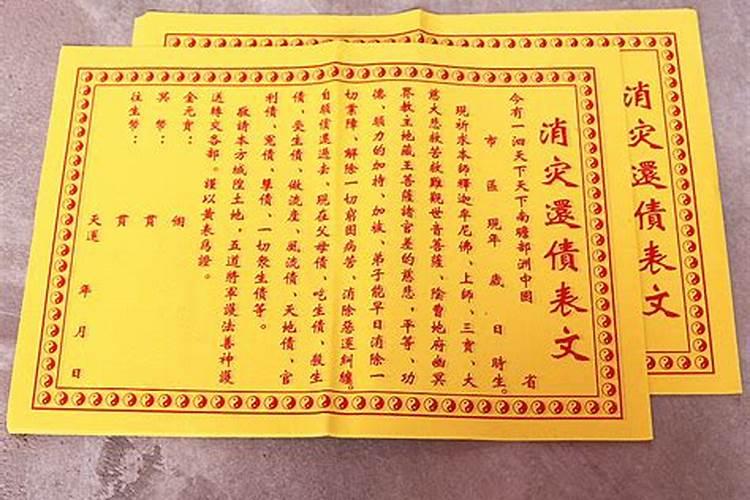 消灾還債表文
今有一泗天下天下南贍部洲中國 省
市 區 現年 歲 日 時生。
現祈求本師釋迦牟尼佛、上師、三寶、大
慈大悲救苦救難觀世音菩薩、陰曹地府幽冥
界教主地藏王菩薩諸官差的慈悲，平等、功
德、願力的加持、加被、弟子能早日消除一
切業障、解除一切窮困病苦、消除惡運糾纏。
自願償還過去、現在父母債、吃生債、殺生
債、受生債、做流產、風流債、天地債、官
利債、冤債、孽債、一切眾生債等。
敬請本方城隍土地，五道將軍護法善神護
送轉交各部。謹以黃表爲證。
金元寶： 個
冥幣： 貫
往生幣： 貫
天運 年 月 日
消灾還債表文